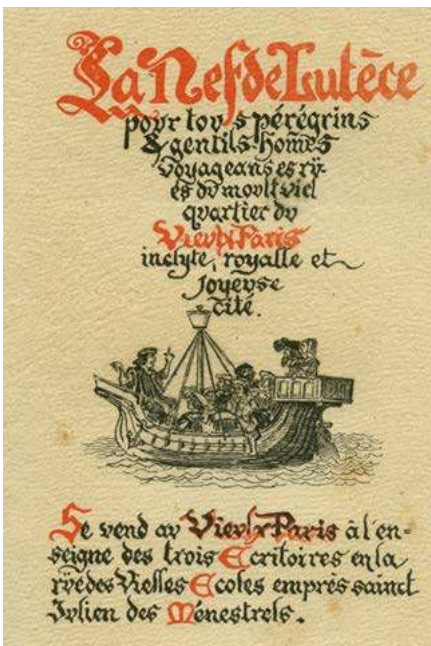 La Nef de Lutēce
povr tov s pérégrins
& gentils-hom̄es
voyageans es rÿ-
es dv movlt viel
qvartier dv
Vievlx Paris
inclyte, royalle et
joyevse
cité.
Se vend av Vievlx Paris à l'en-
seigne des trois Ecritoires en la
rÿe des Vielles Ecoles emprés sainct
Jvlien des Ménestrels.